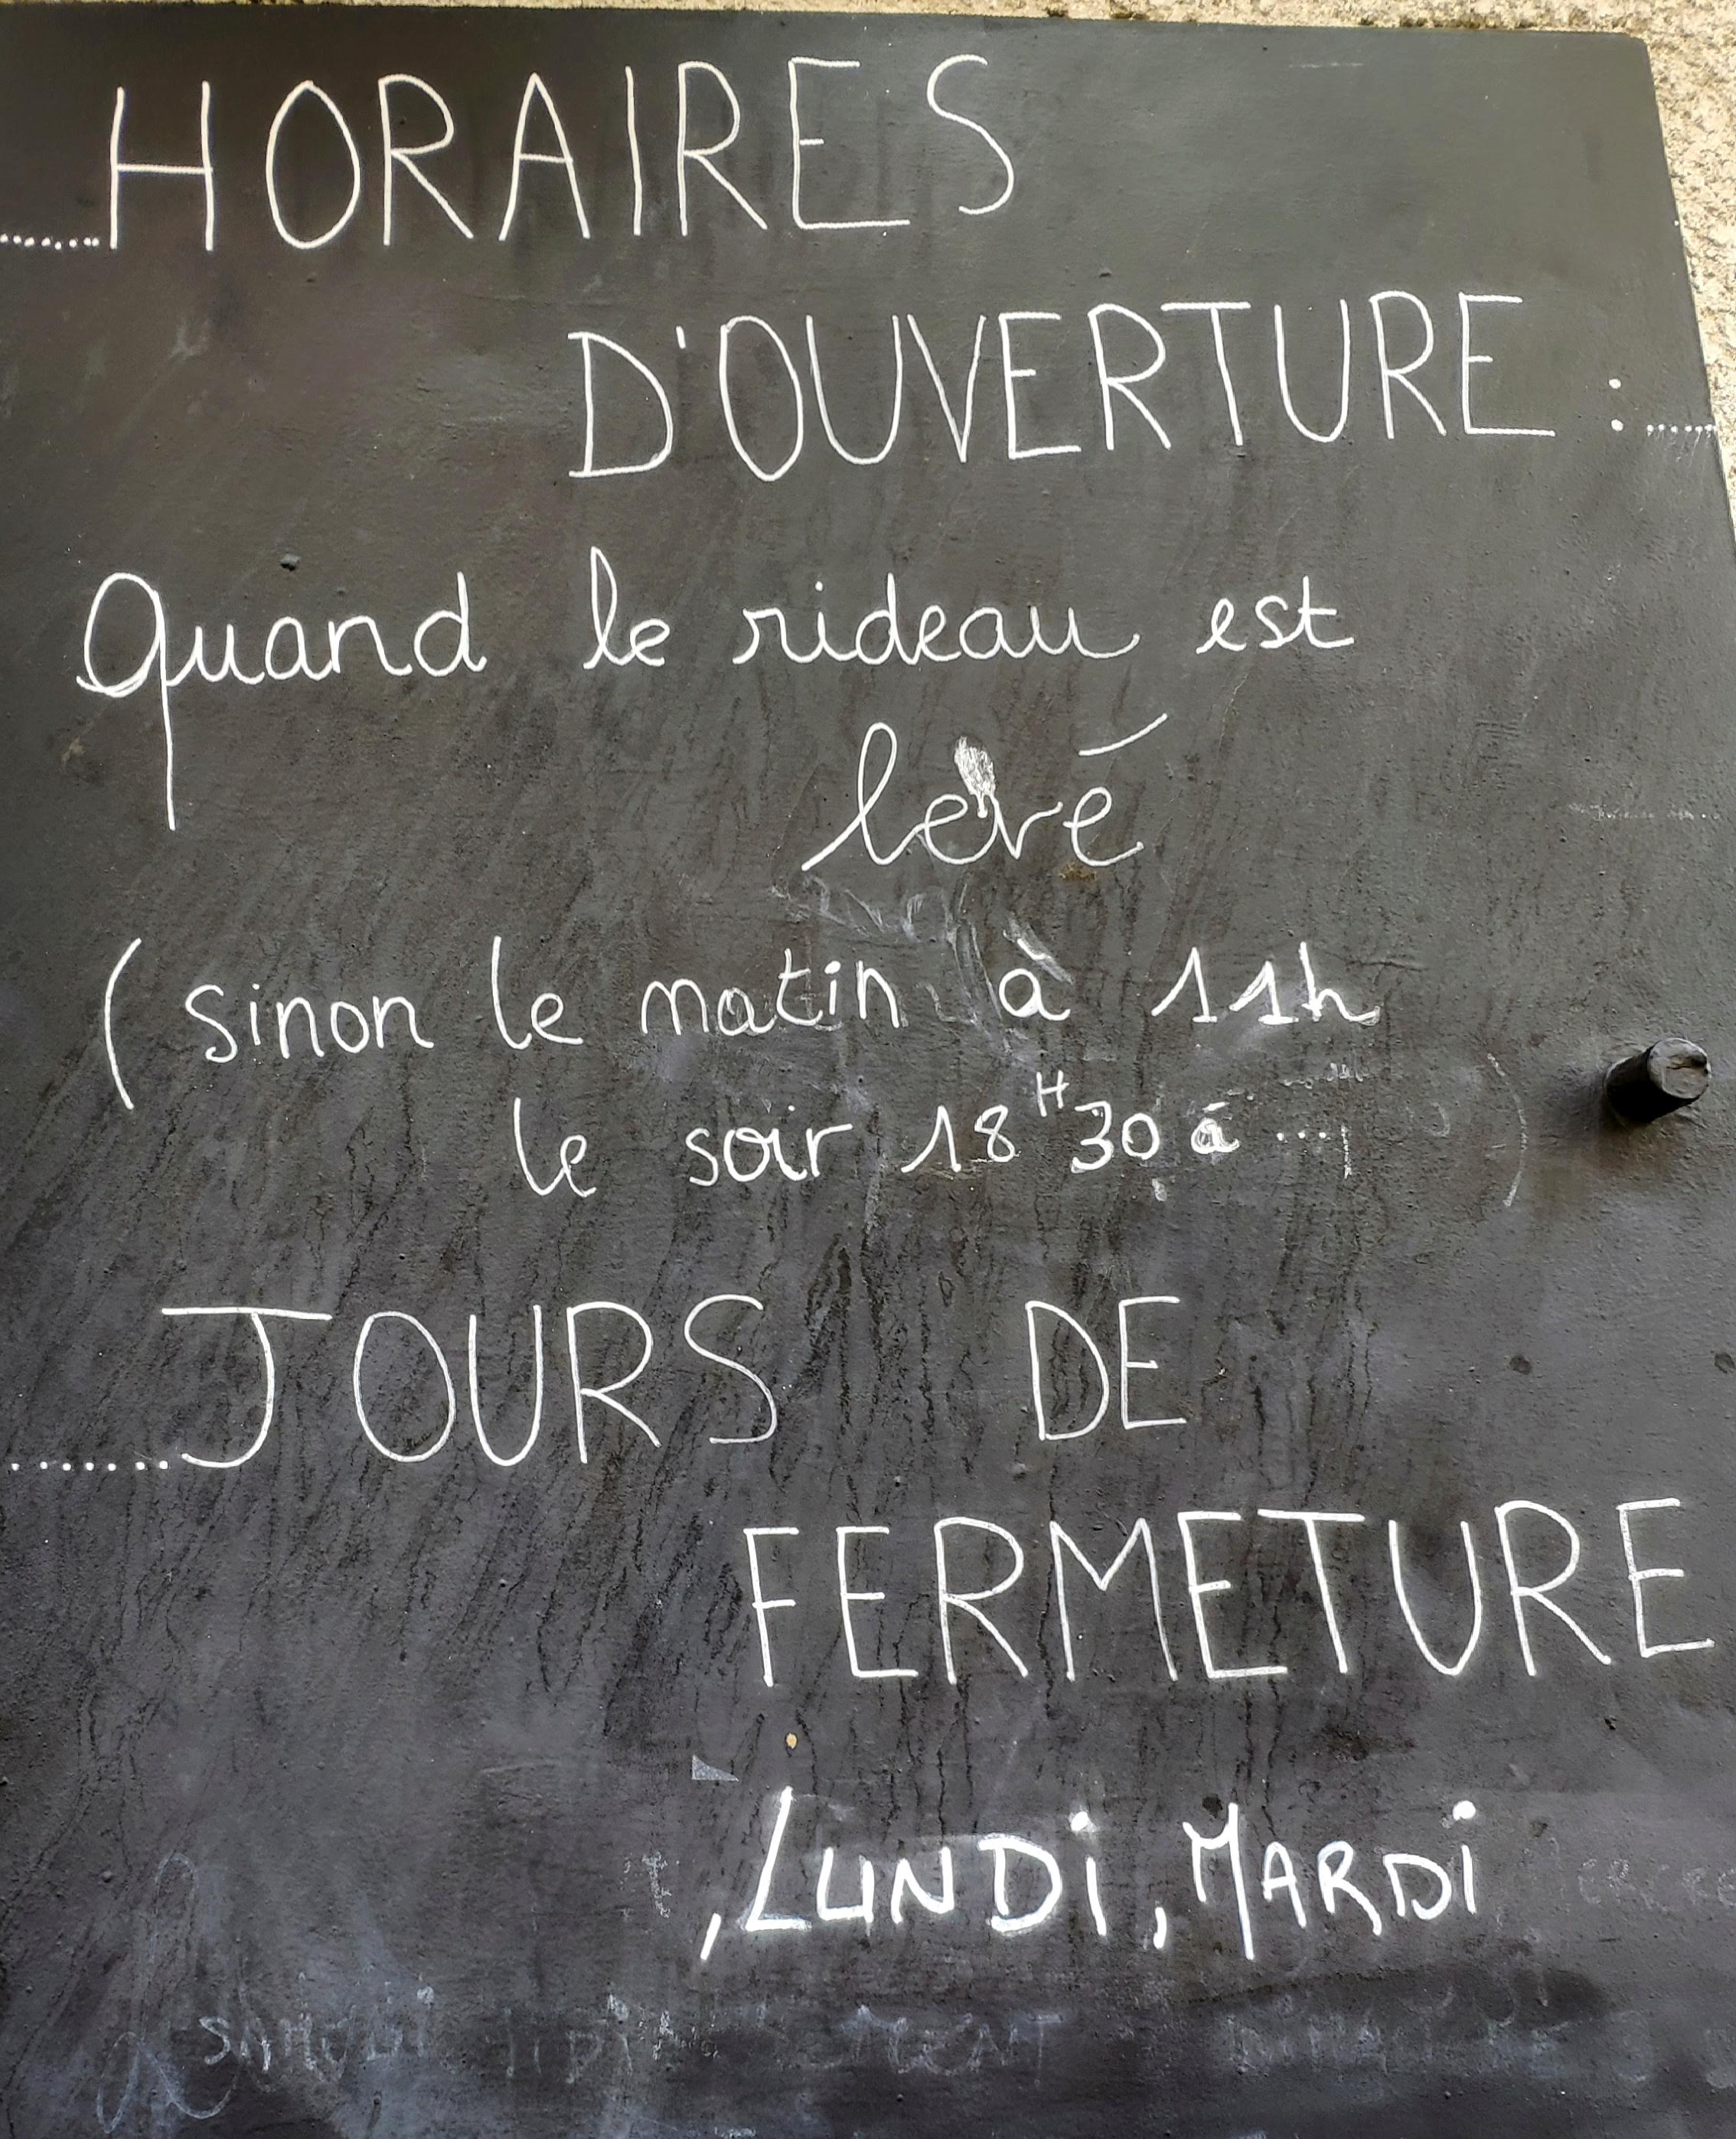 ......HORAIRES
D'OUVERTURE :......
Quand le rideau est
levé
( sinon le matin à 11h
le soir 18H30 à ... )
.......JOURS DE
FERMETURE
, LUNDi, MARDi